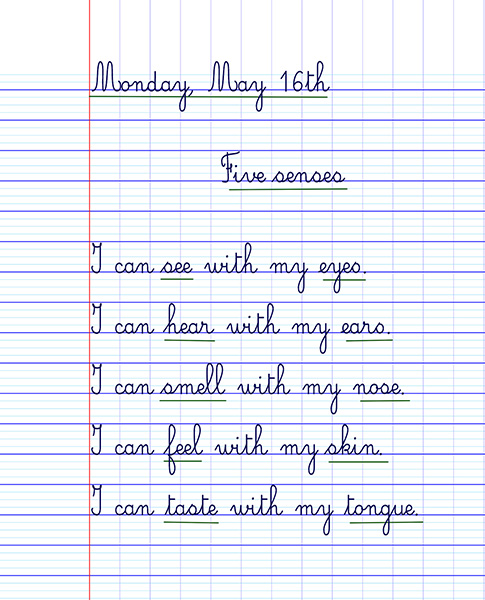 Monday, May 16th
Five senses
I can see with my eyes.
I can hear with my ears.
I can smell with my nose.
I can feel with my skin.
I can taste with my tongue.